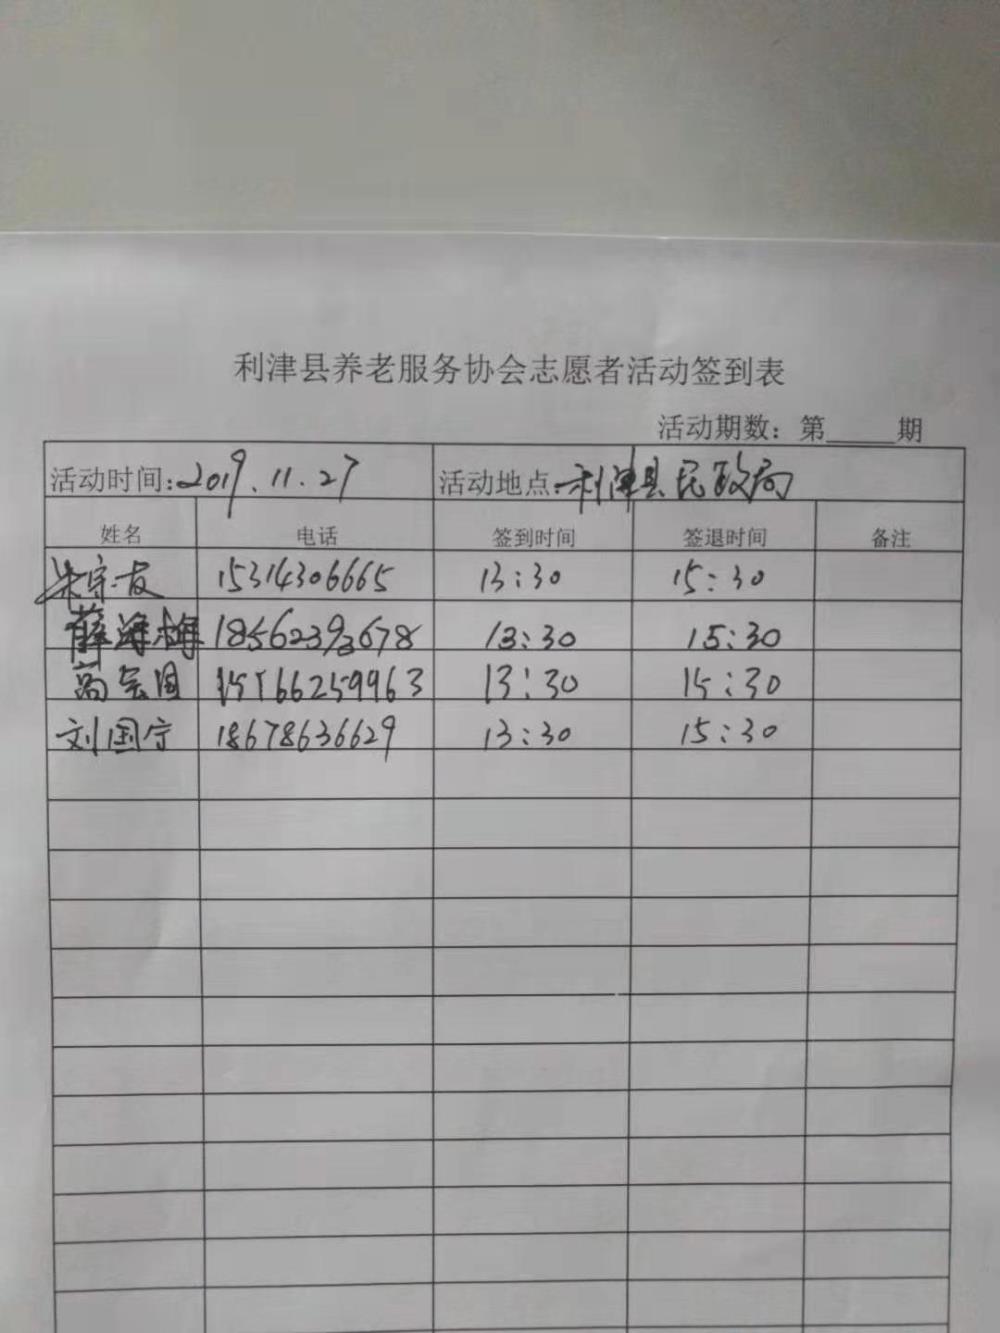 利津县养老服务协会志愿者活动签到表
活动期数：第____期
活动时间：2019.11.27 活动地点：利津县民政局
姓名 电话 签到时间 签退时间 备注
朱守友 15314306665 13:30 15:30
薛海梅 18562393678 13:30 15:30
高宗国 15166259963 13:30 15:30
刘国宁 18678636629 13:30 15:30